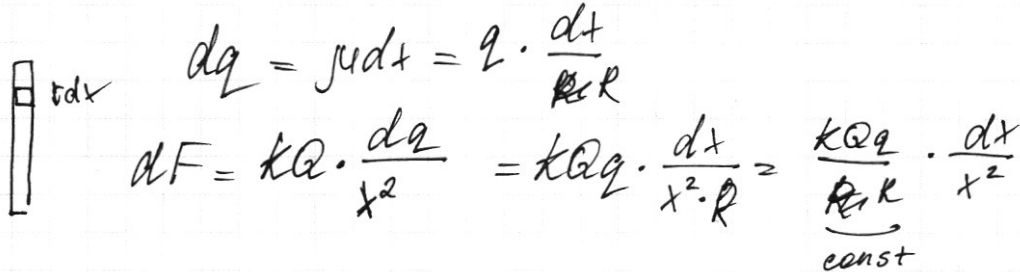 dq = μdx = q · dx/R
dx
dF = kQ · dq/x² = kQq · dx/(x² · R) = kQq/R · dx/x²
const